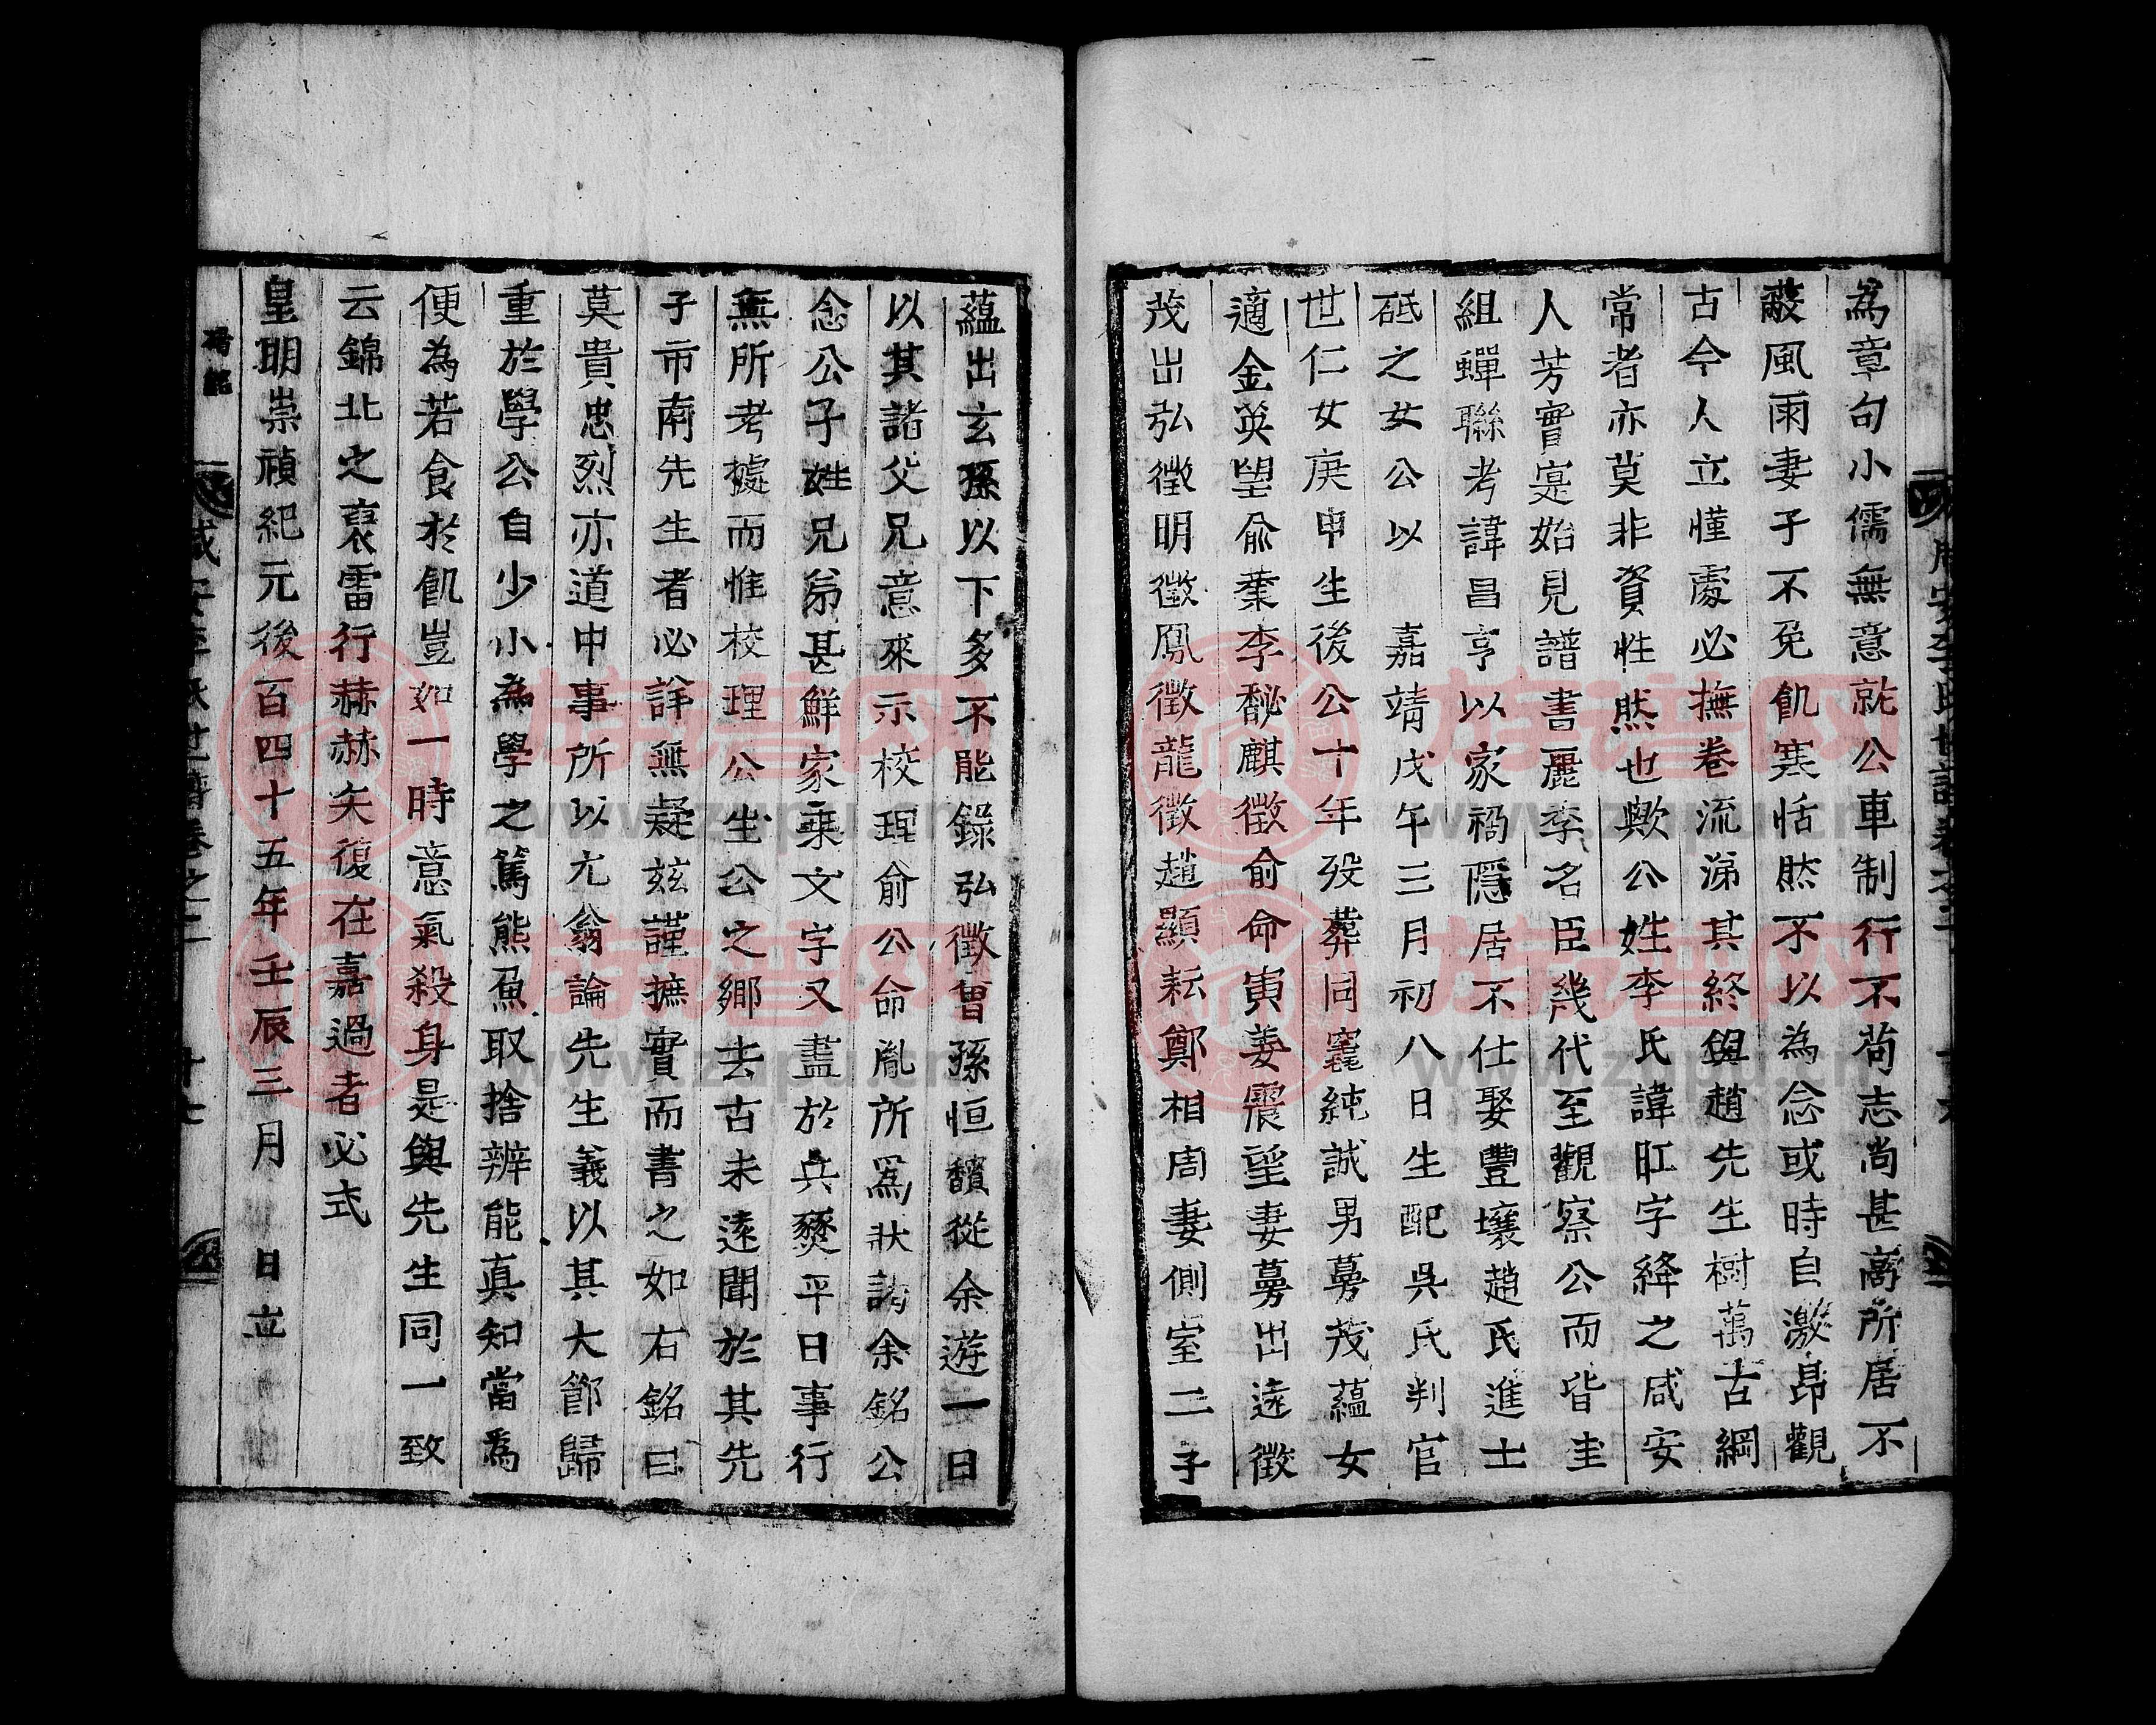 咸安李氏世譜卷之二
為章句小儒無意就公車制行不苟志尚甚高所居不
蔽風雨妻子不免飢寒恬然不以為念或時自激昂觀
古今人立慬處必撫卷流涕其終與趙先生樹萬古綱
常者亦莫非資性然也歟公姓李氏諱㕫字絳之咸安
人芳實寔始見譜書麗李名臣幾代至觀察公而皆圭
組蟬聯考諱昌亨以家禍隱居不仕娶豐壤趙氏進士
砥之女公以 嘉靖戊午三月初八日生配吳氏判官
世仁女庚申生後公十年歿葬同窆純誠男蕚茂蘊女
適金英望俞㯗李馝麒徵俞命寅姜震望妻蕚出遠徵
茂出弘徵明徵鳳徵龍徵趙顯耘鄭相周妻側室二子
蘊出玄孫以下多不能錄弘徵曾孫恒馪從余遊一日
以其諸父兄意來示校理俞公命胤所爲狀請余銘公
念公子姓兄弟甚鮮家乘文字又盡於兵燹平日事行
無所考據而惟校理公生公之鄉去古未遠聞於其先
子市南先生者必詳無疑玆謹摭實而書之如右銘曰
莫貴忠烈亦道中事所以尤翁論先生義以其大節歸
重於學公自少小為學之篤熊魚取捨辨能真知當為
便為若食於飢豈如一時意氣殺身是與先生同一致
云錦北之裒雷行赫赫矣復在嘉過者必式
皇明崇禎紀元後百四十五年壬辰三月 日立
碑銘
咸安李氏世譜卷之二 十七